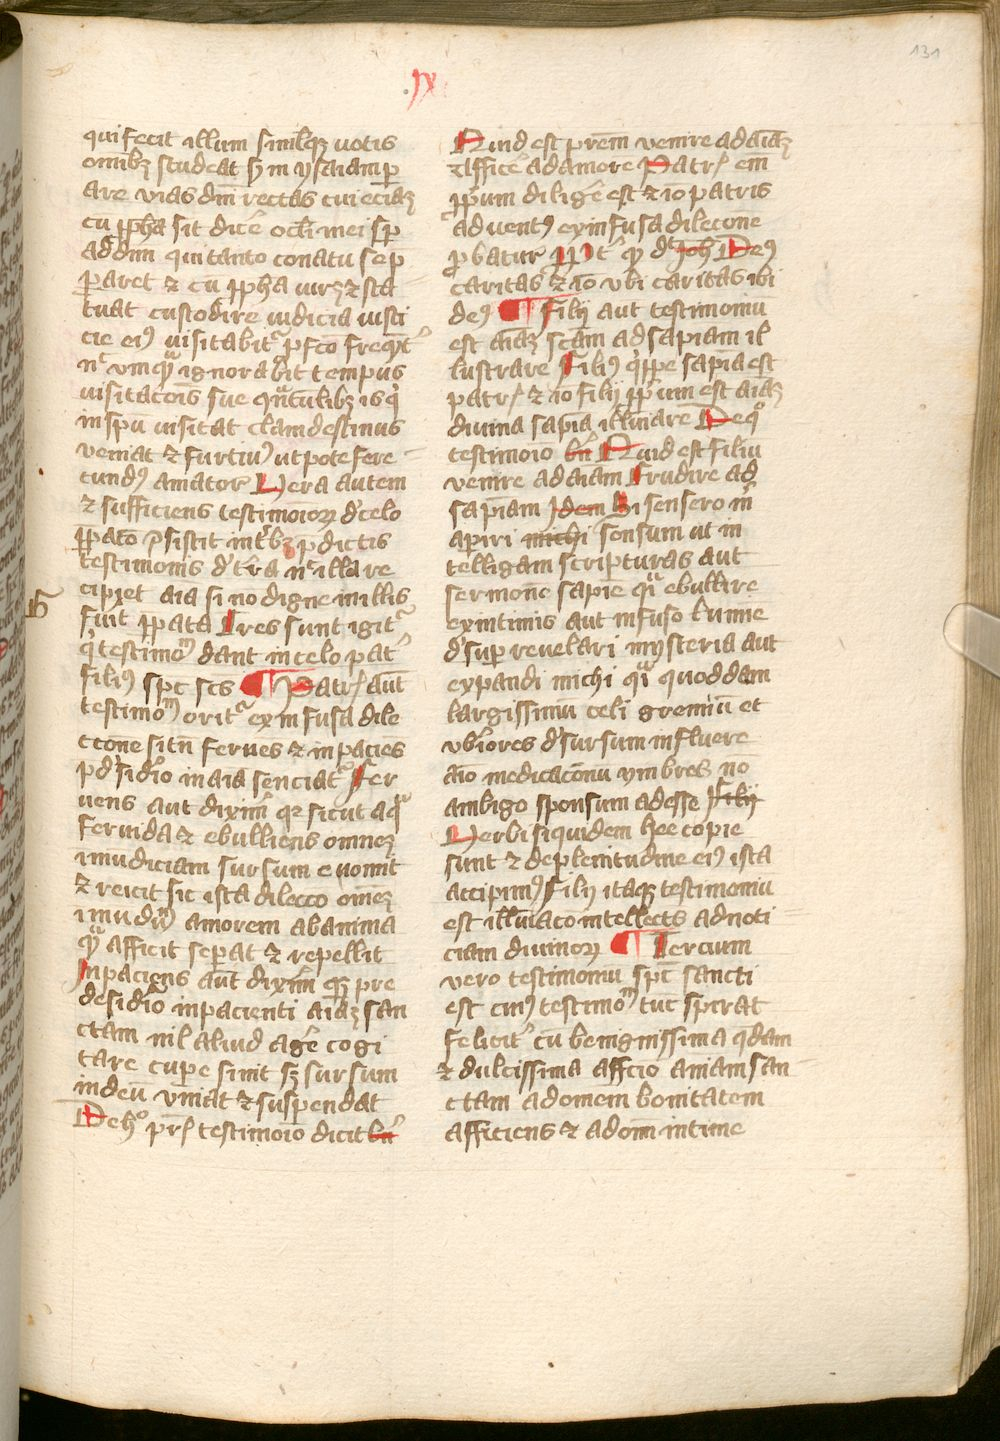 131
.ıx.
qui fecit illum similiqꝫ uotis
omibꝫ studeat sꝫ in ysaiam p̱
are vias dm̄ rectas cui eciaꝫ
cū ꝓph̄a sit dicē ocl̄i mei sꝑ
ad dnm̄ qui tanto conatu se p̄
paret ⁊ cū ꝓph̄a iurꝫ ⁊ sta
tuat custodire iudicia iusti
cie eiꝰ visitabitᷣ ꝑfc̄o freqn̄t̓
nc̄ vmqᷓ ignorabit tempus
uisitacōis sue qn̄tulibꝫ is qͥ
in spū uisitat clamdestinus
veniat ⁊ furtiuꝰ ut pote fere
cundꝰ amator Vera autem
⁊ sufficiens testimoīorꝫ d̓ celo
ꝑp̄ato ꝯsistit int̓bꝫ p̄dictis
testimoniis d̓ tr̄a nc̄ illa re
cipiet aīa si nō digne in illis
fuīt p̄pata Tres sunt igitᷣ
qͥ testimoᷠ dant in celo pat̓
filiꝰ spc̄ scs̄ ¶ Patrꝭ aut̄
testimoᷠ oritᷣ ex infusa dile
ctone si tn̄ feruēs ⁊ inpaciēs
p̄ d̓sidīo in aīa senciatᷣ Fer
uens aut̄ dixim̄ qꝛ sicut aqᷓ
feruida ⁊ ebulliens omneꝫ
imūdiciam sursum euomit
⁊ reicit sic ista dilecc̄o om̄eꝫ
imūdᷠ amorem ab anima
qᷓ afficit sepat ⁊ repellit
Inpaciens aut̄ dixīm qꝫ pre
desidīo inpacienti aīaꝫ san
ctam nil aliud agē cogi
tare cuꝑe sinit sꝫ sursum
in deū vniat ⁊ suspendat
De hͦ pr̄ꝭ testimoīo dicit bn̄
Quid est prēm venire ad aīaꝫ
⁊ afficē ad amorē Patrꝭ em̄
ꝓp̄um diligē est ⁊ iō patris
aduentꝰ ex infusa dilec̄one
ꝓbatur ꝓpt̓ qᷓ dt̄ Joh̄ Deꝰ
caritas ⁊ iō vbi caritas ibi
deꝰ ¶ Filij aut testimoniū
est aīaꝫ sc̄am ad sapīam il
lustrare Filiꝰ qͥppe sapīa est
patrꝭ ⁊ iō filij ꝓp̄um est aīaꝫ
diuina sapīa illuīare De qͦ
testimoīo bn̄ Quid est filiū
venire ad aīam Erudire ad
sapīam Jdem Si sensero m̄
apiri michi sensum ut in
telligam scripturas aut
sermonē sapīe qᷓi ebullire
ex intimis aut infuso lumīe
d̓suꝑ reuelari mysteria aut
expandi michi qᷓi quoddam
largissimū celi gremiū et
vbīores d̓sursum influere
aīo medicac̄onū ymbres nō
ambigo sponsum adesse Filij
Verbi siquidem hee copie
sunt ⁊ de plenitudine eiꝰ ista
accipimꝰ Filij itaqꝫ testimoniū
est illuīaco intellect̄s ad noti
ciam diuinorꝫ ¶ Tercium
vero testimoniū spc̄ sancti
est cuiꝰ testimoᷠ tuc spirat
felicit̓ cū benignissima qͣdam
⁊ dulcissima affc̄io aīmam san
ctam ad omēm bonitatem
afficiens ⁊ ad om̄ intime